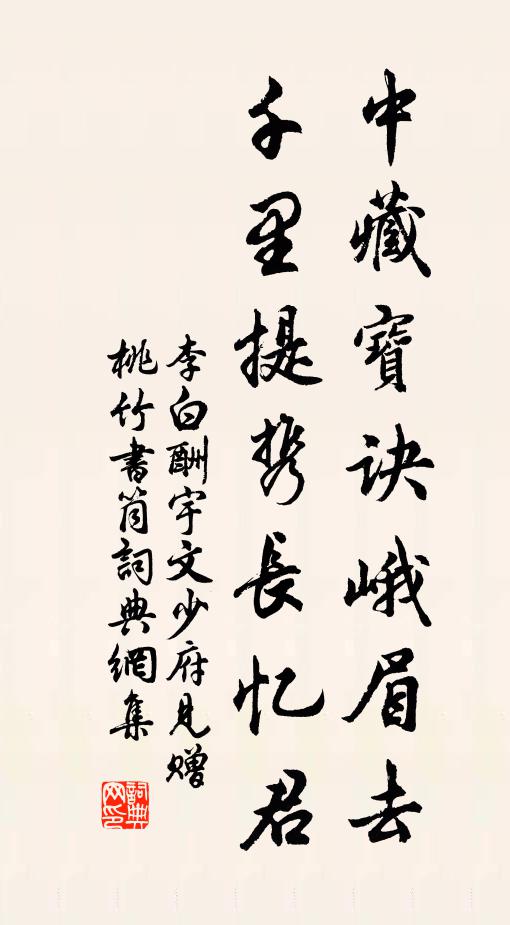 中藏寶訣峨眉去
千里提携長忆君
李白酬宇文少府見赠
桃竹書筒詞典網集
詞典网印